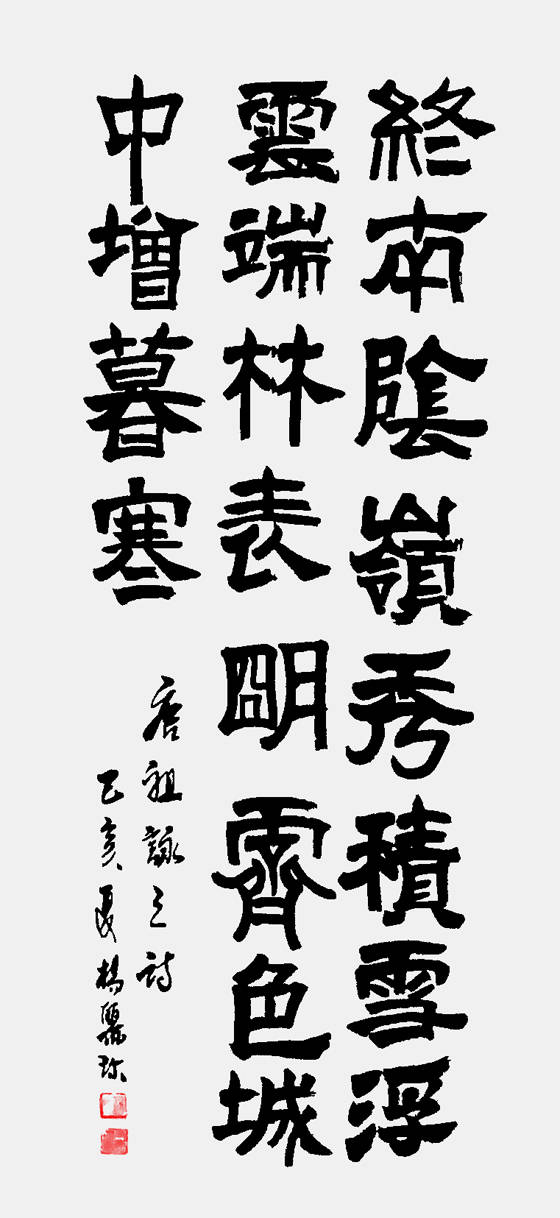 終南陰嶺秀積雪浮
雲端林表明霽色城
中增暮寒
唐祖詠之詩
己亥夏楊